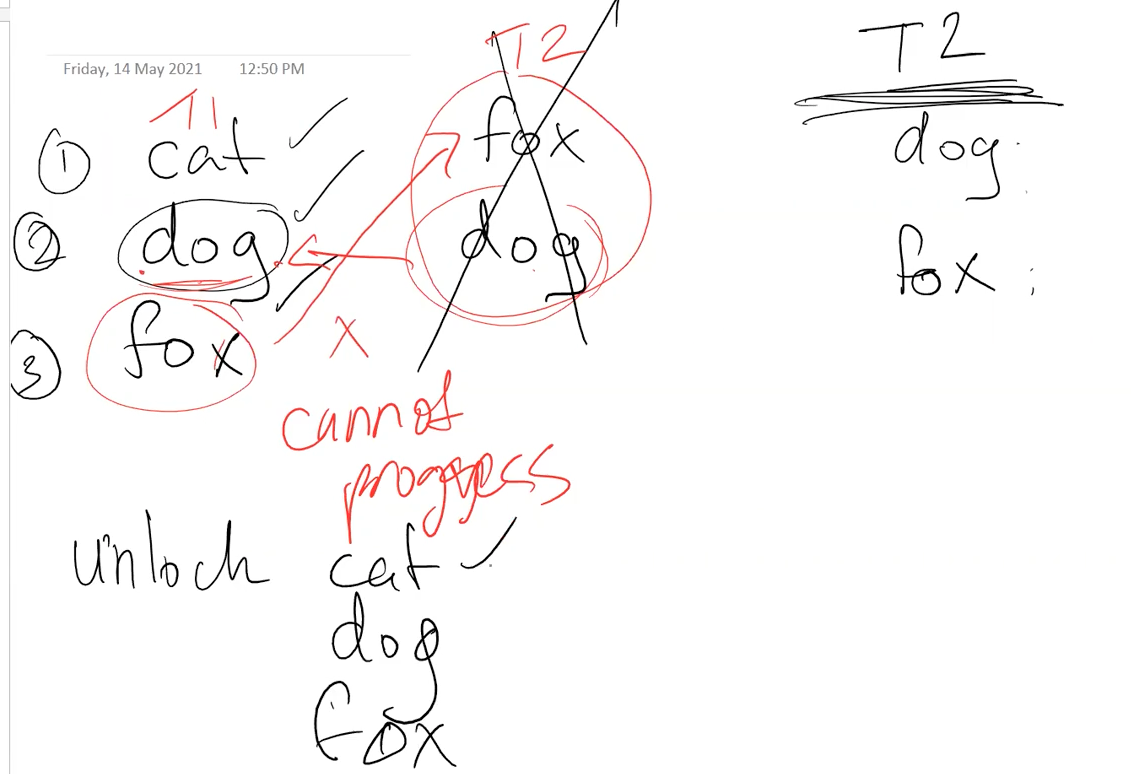 Friday, 14 May 2021 12:50 PM
T1
① cat
② dog
③ fox
T2
fox
dog
X
cannot
progress
unlock cat
dog
fox
T2
dog
fox